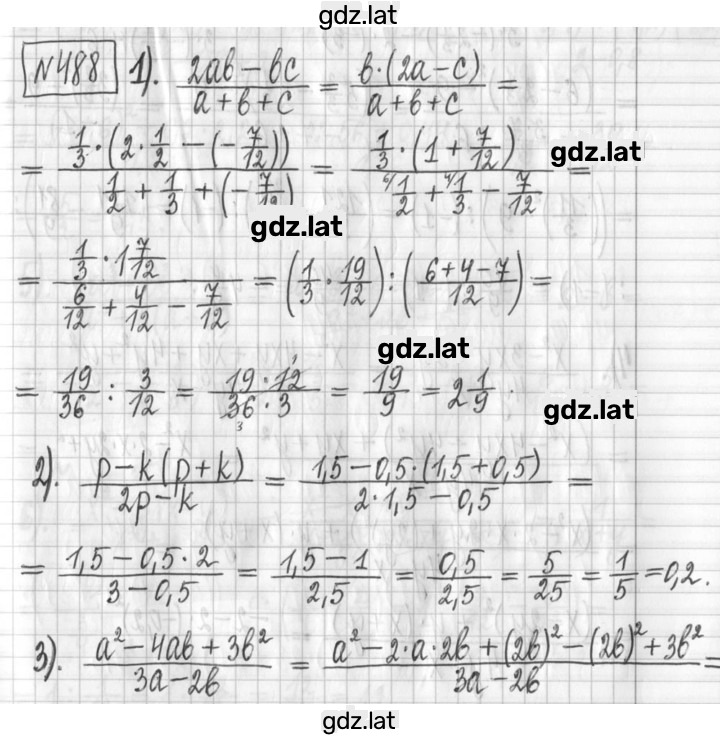 gdz.lat
№488 1). (2ab - bc)/(a + b + c) = (b·(2a - c))/(a + b + c) =
= (1/3·(2·1/2 - (-7/12)))/(1/2 + 1/3 + (-7/12)) = (1/3·(1 + 7/12))/(⁶⁾1/2 + ⁴⁾1/3 - 7/12) =
gdz.lat
gdz.lat
= (1/3·1 7/12)/(6/12 + 4/12 - 7/12) = (1/3·19/12):((6+4-7)/12) =
gdz.lat
= 19/36 : 3/12 = (19·12)/(36·3) = 19/9 = 2 1/9
gdz.lat
2). (p - k(p + k))/(2p - k) = (1,5 - 0,5·(1,5 + 0,5))/(2·1,5 - 0,5) =
= (1,5 - 0,5·2)/(3 - 0,5) = (1,5 - 1)/2,5 = 0,5/2,5 = 5/25 = 1/5 = 0,2.
3). (a² - 4ab + 3b²)/(3a - 2b) = (a² - 2·a·2b + (2b)² - (2b)² + 3b²)/(3a - 2b) =
gdz.lat